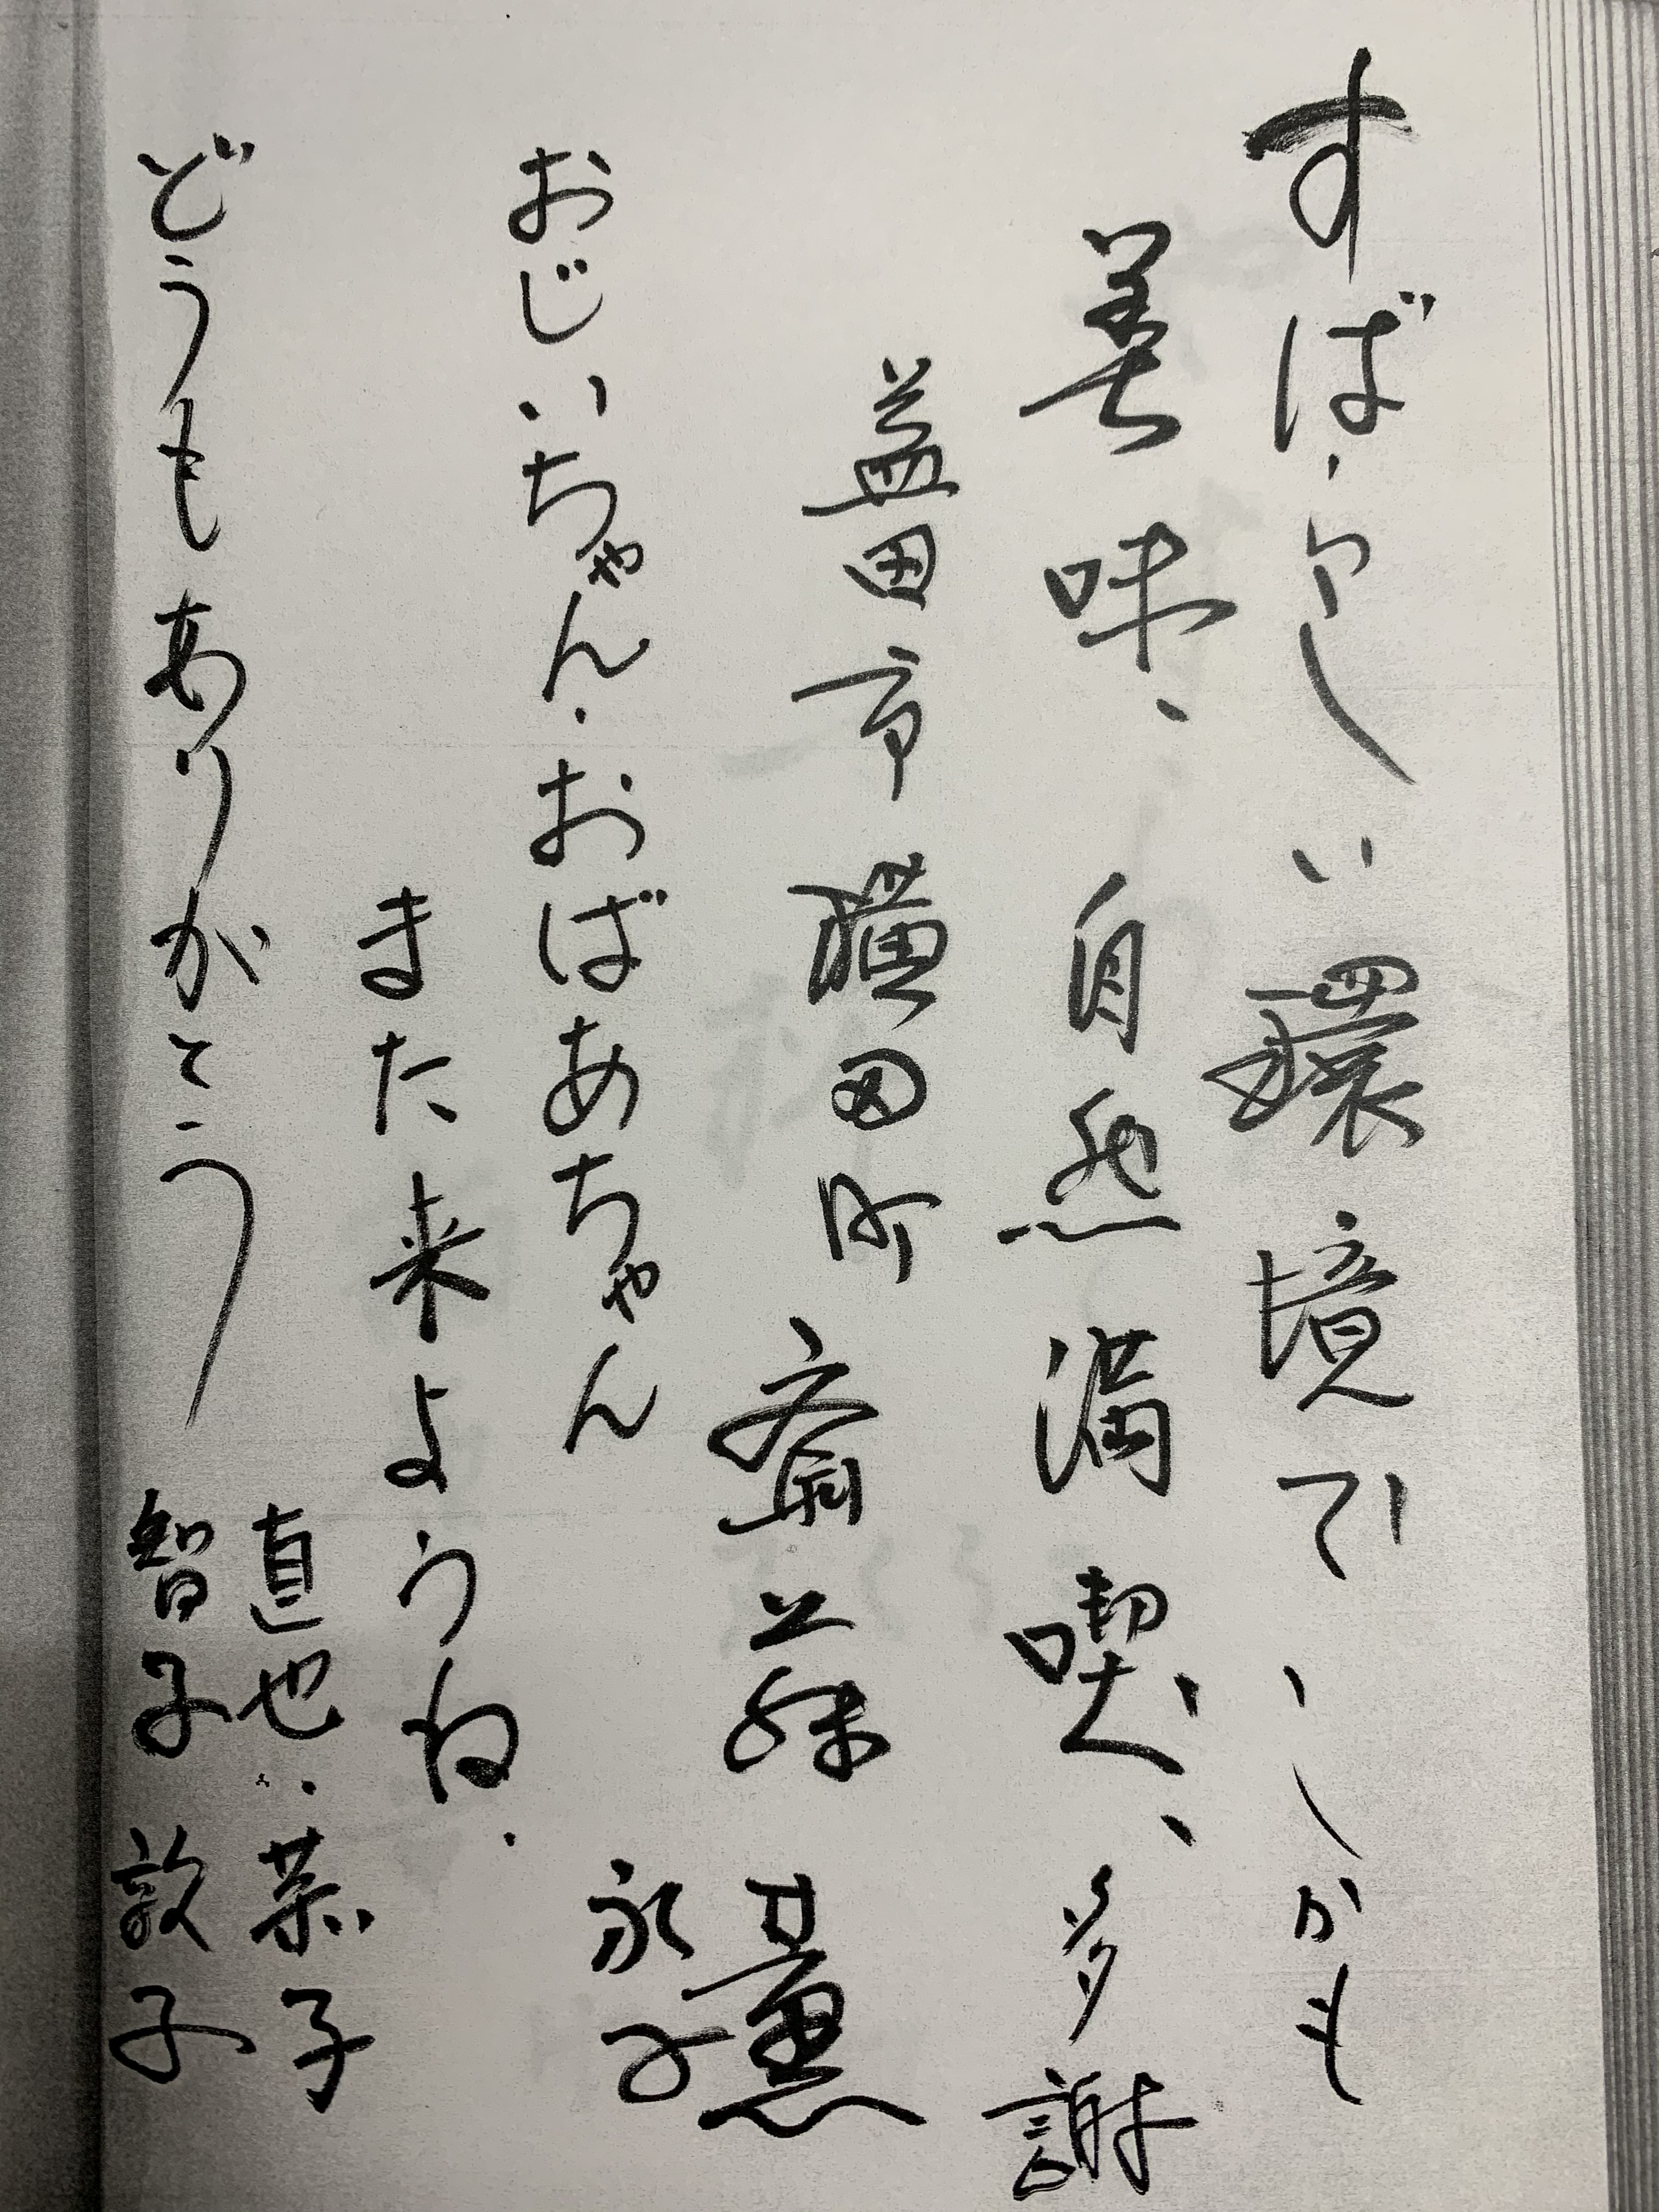 すばらしい環境で、しかも
美味、自然満喫、多謝
益田市横田町 齋藤 薫
永子
おじいちゃん・おばあちゃん
また来ようね.
直也・恭子
どうもありがとう 智子 敦子